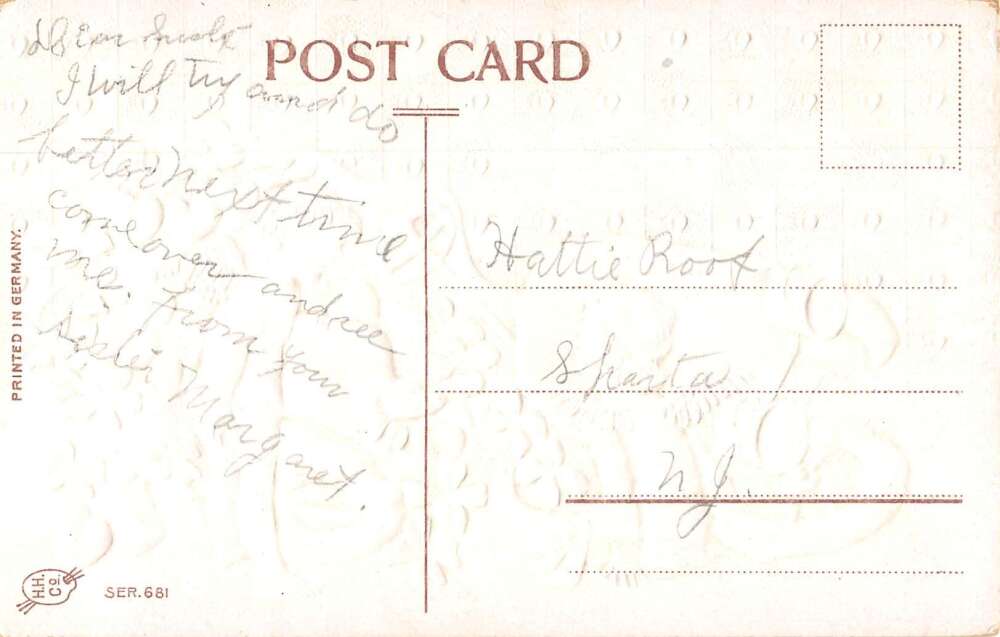 POST CARD
I will try and do
better next time
come over and see
me. From your
sister Margaret.
Hattie Roof
Sparta
N J.
PRINTED IN GERMANY.
H.H. Co.
SER. 681